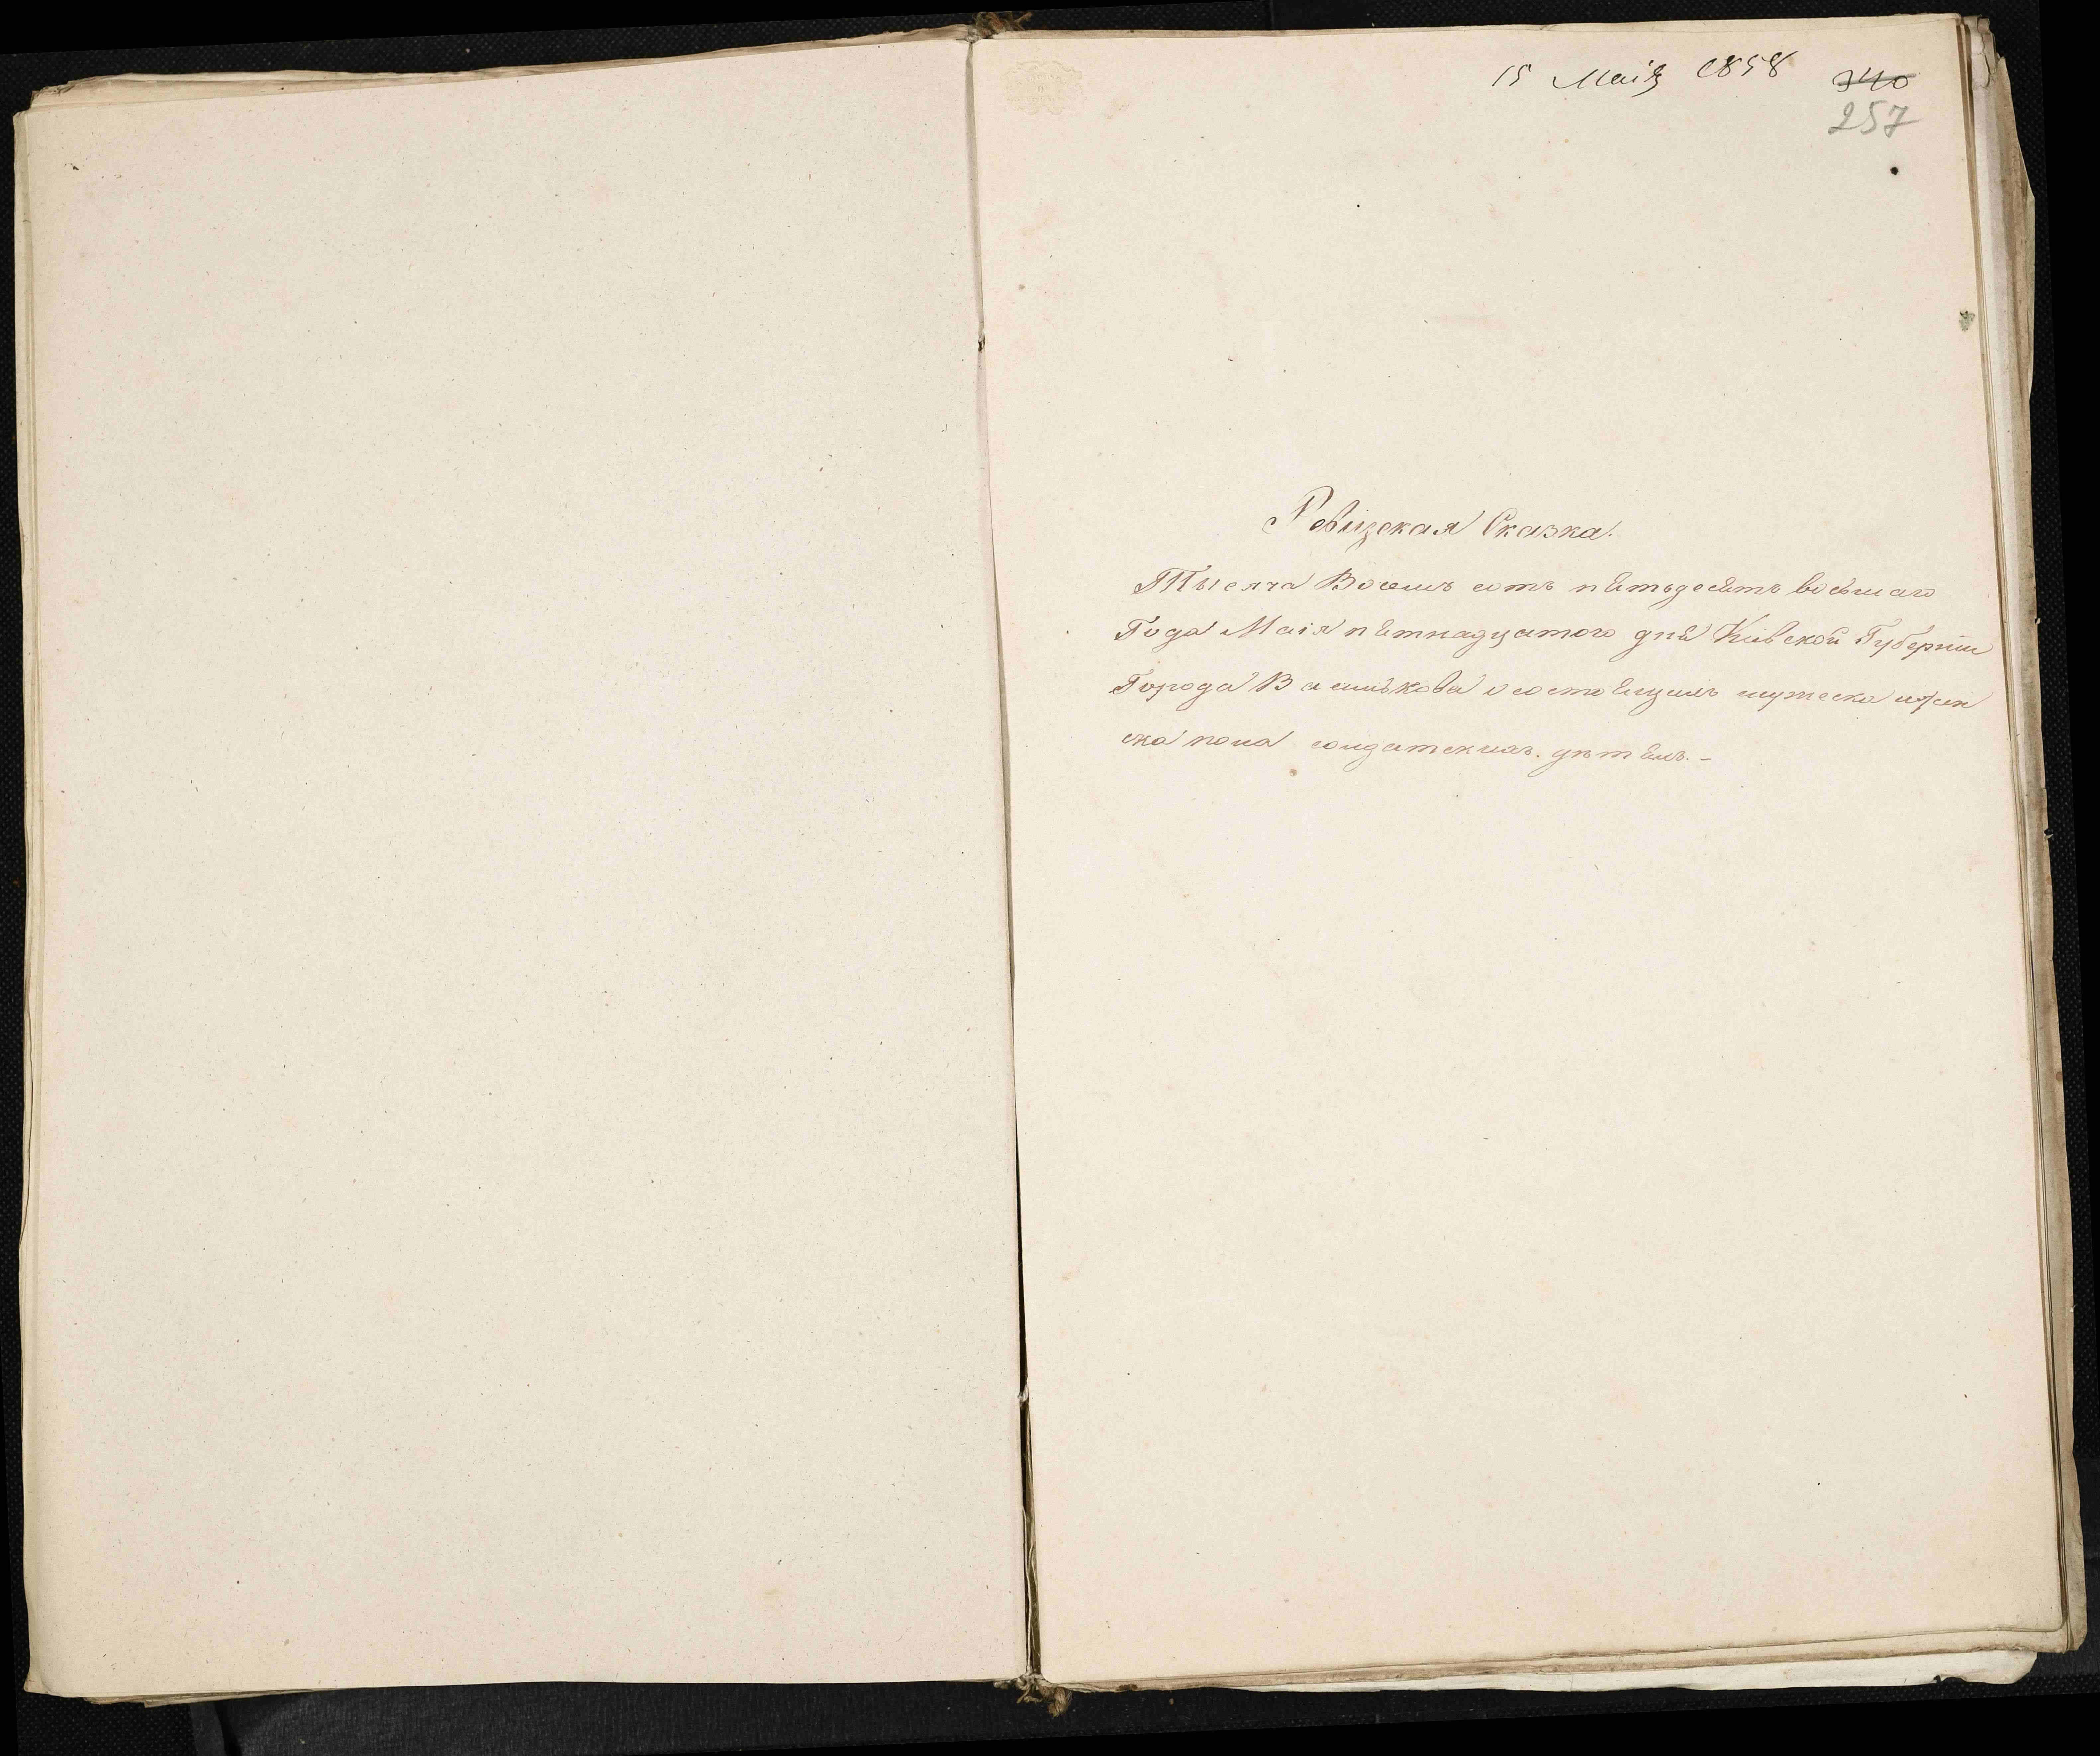 15 Маія 1858
340
257
Ревизская Сказка.
Тысяча Восемь сотъ пятьдесятъ восьмаго
Года Маія пятнадцатого дня Кіевской Губерніи
Города Василькова о состоящихъ мужеска и жен
ска пола солдатскихъ дѣтяхъ. –